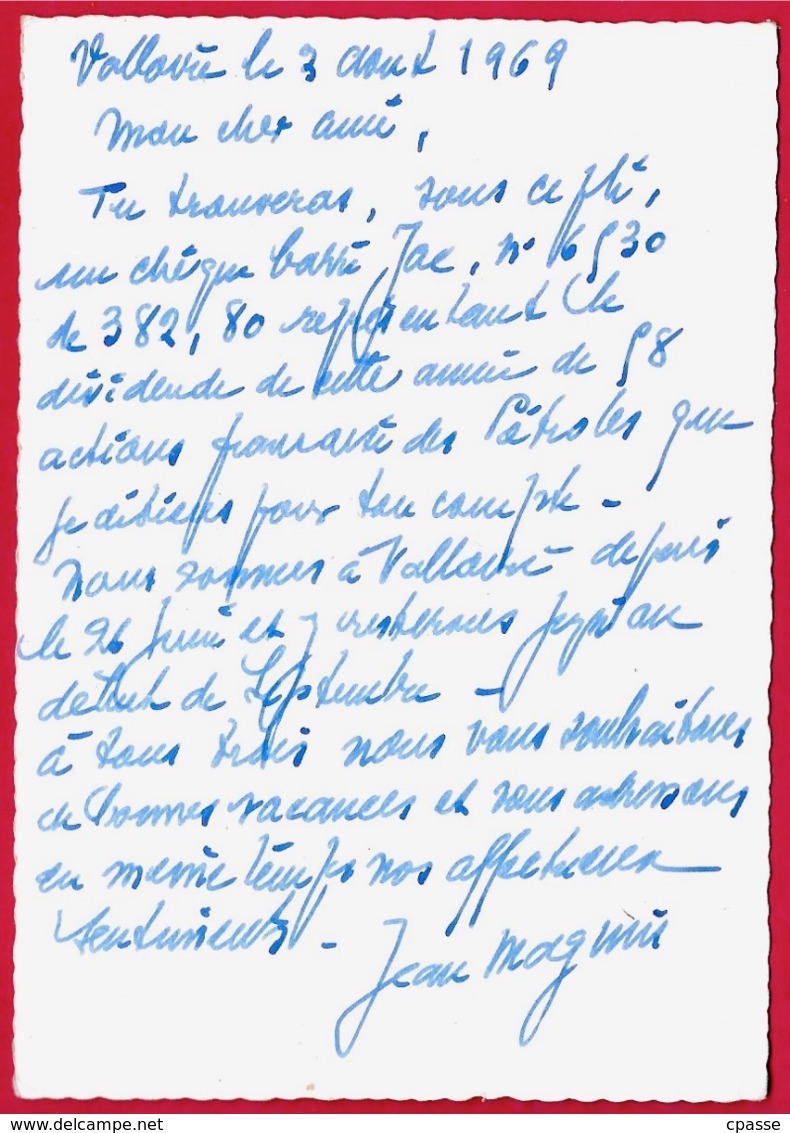 le 3 aout 1969
Mon cher ami,
Tu trouveras, sous ce pli,
un chèque barré, n° 6530
de 382,80 représentant le
dividende de cette année de 58
actions française des Pétroles que
je détiens pour ton compte -
Nous sommes à depuis
le 26 Juin et y resterons jusqu'au
début de Septembre -
à tous trois nous vous souhaitons
de bonnes vacances et vous adressons
en même temps nos affectueux
sentiments - Jean
cpasse